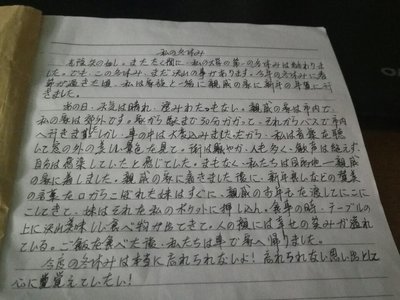 私の冬休み
光陰矢の如し。またたく間に、私の大学の第一の冬休みは終わりま
した。でも、この冬休み、まだ沢山の事があります。今年の冬休みに春
節が過ぎた后、私は家族と一緒に親戚の家に新年の年賀に行
きました。
あの日、天気は晴れ、澄みわたっもない。親戚の家は市内で、
私の家は郊外です。家から駅まで30分かかって、それからバスで市内
へ行きましたしかし、車の中は大変込みましたから、私は音楽を聴
して窓の外の美しい景色を見て、街は賑やか、人も多く、歓声は絶えず、
自分は感染していたと感じていた。まもなく、私たちは目的地ー親戚
の家に着しました。親戚の家に着きました後に、新年おしなどの賀筆
の言葉を口からこぼれた妹はすぐに、親戚のお年も を渡してにこに
こしてきて、妹はそれを私のポケットに押し込ん。食事の時、テーブルの
上に沢山美味しい食べ物が出てきて、人の顔には幸せの笑みが溢れ
ている。ご飯を食べた後、私たちは車で家へ帰りました。
今度の冬休みは本当に忘れられないよ！忘れられない思い出として
心に 賞していたい！